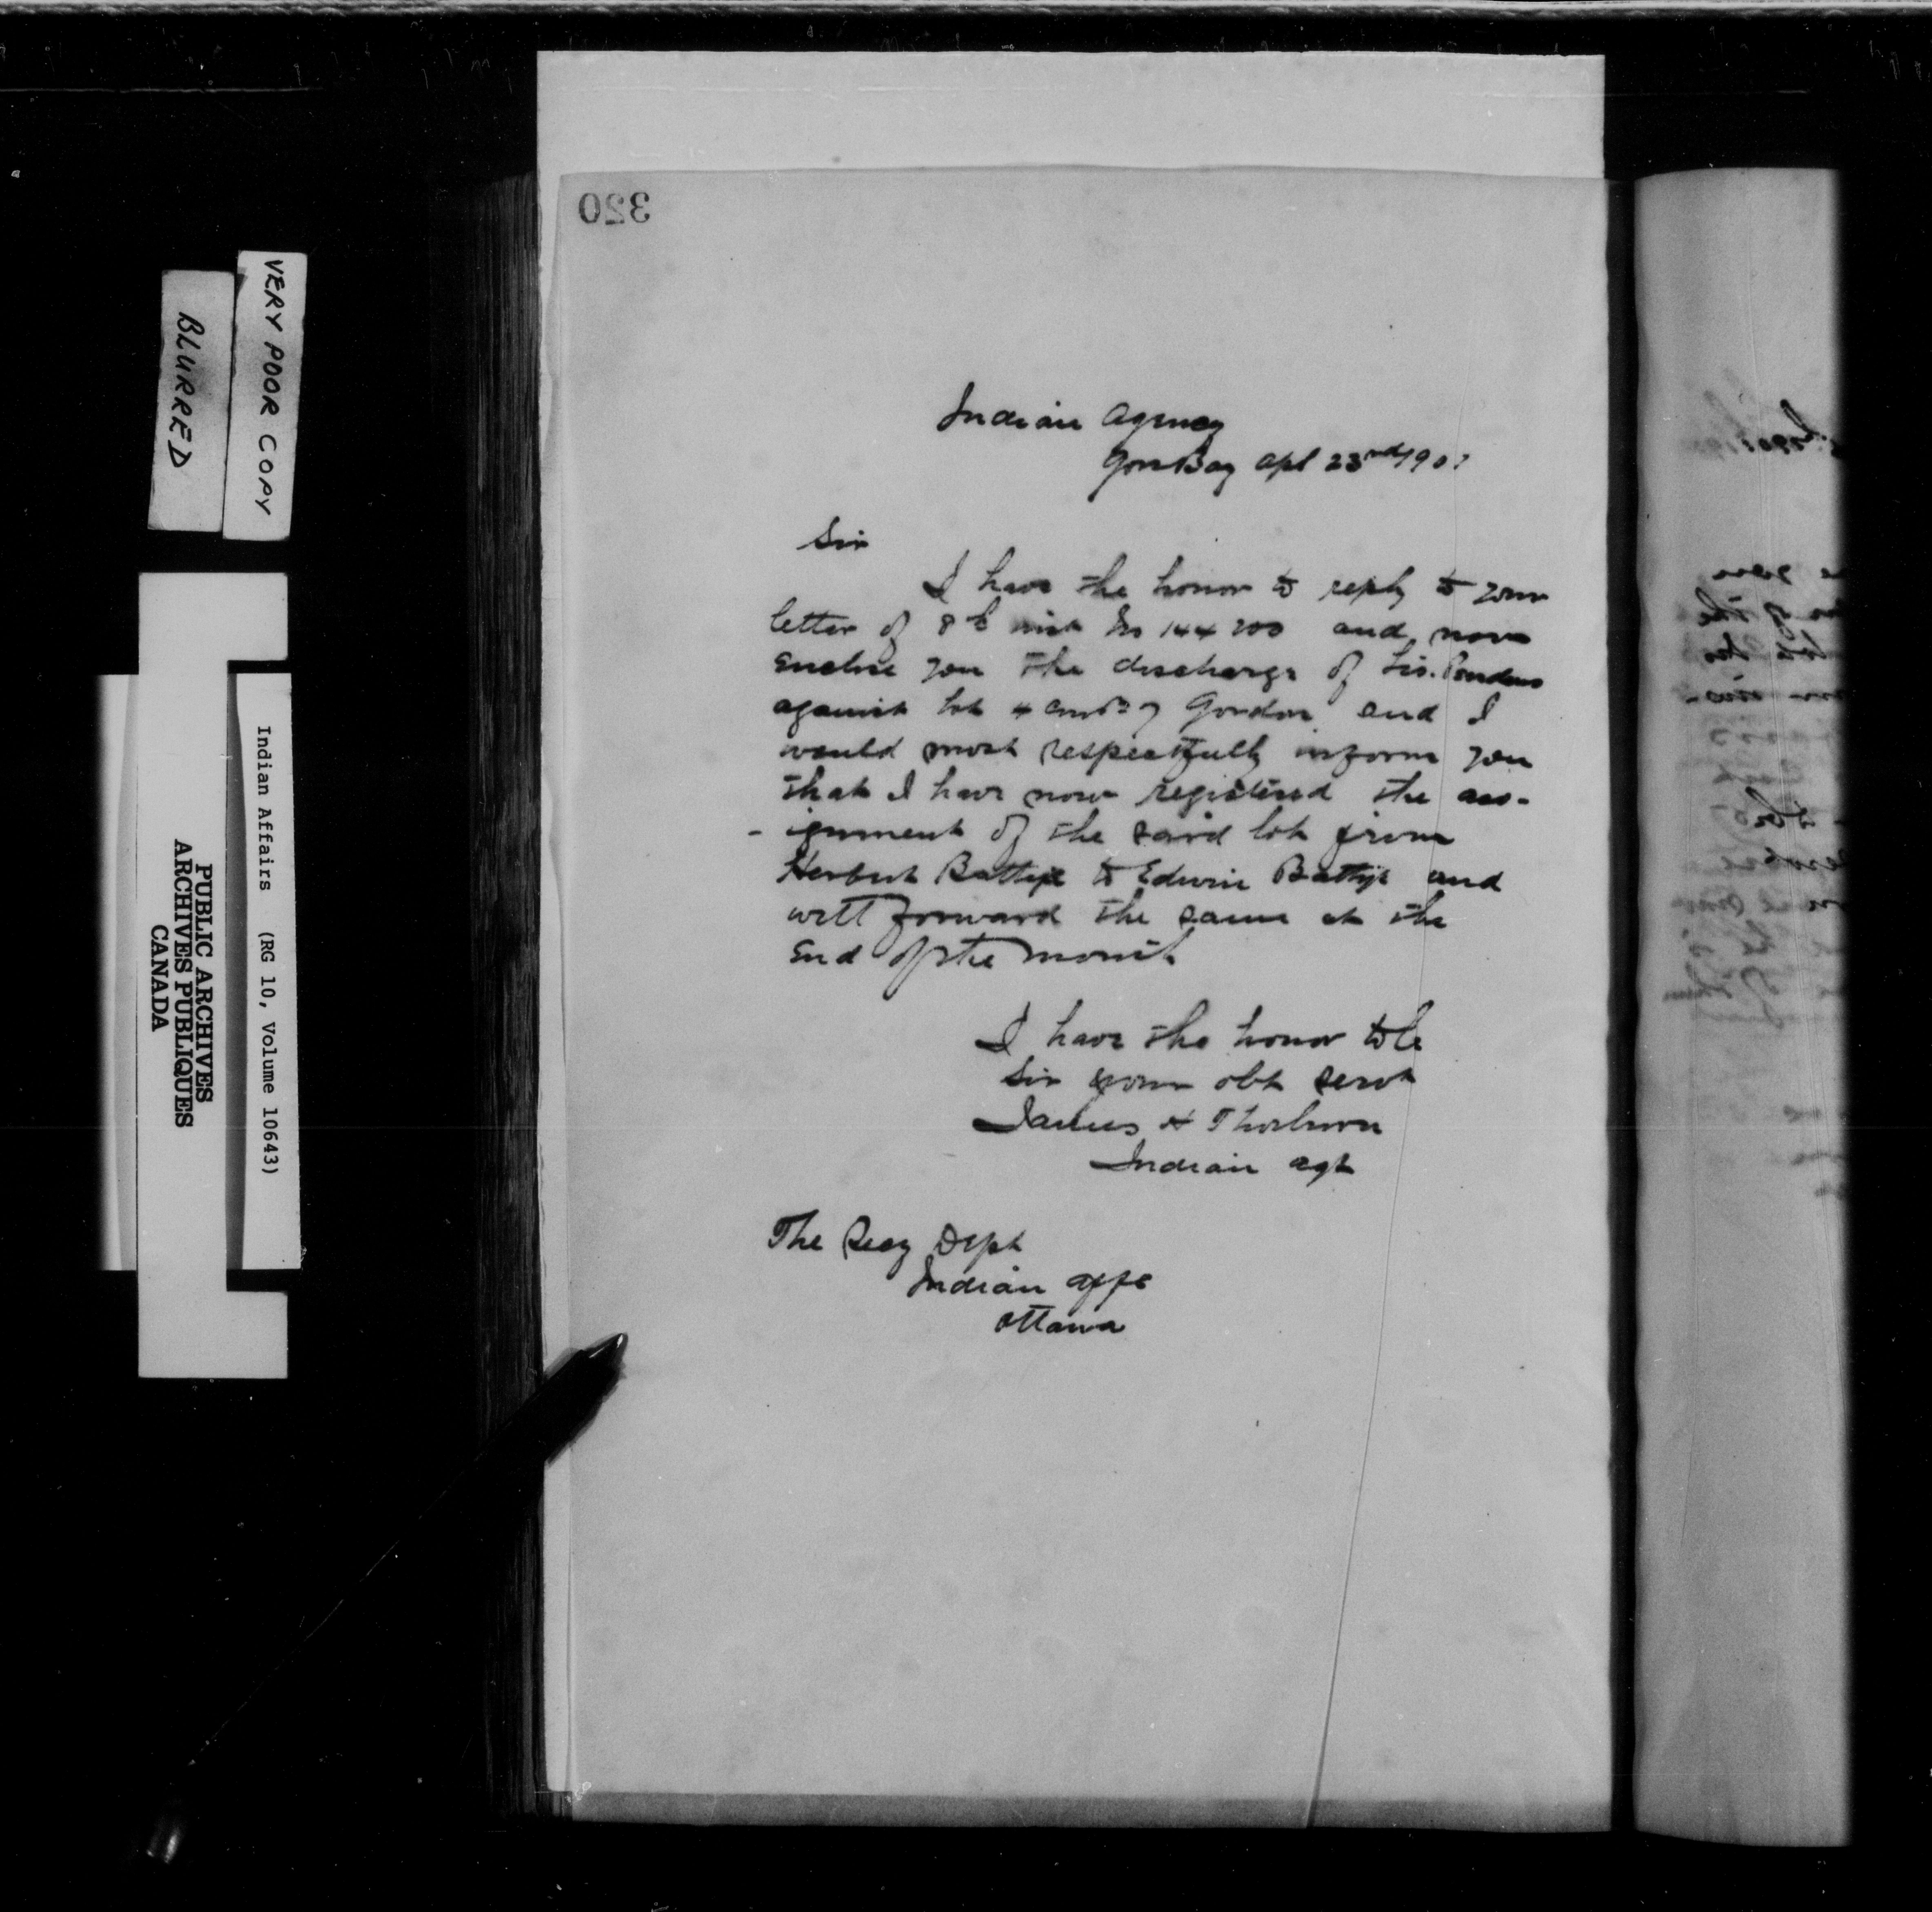 320
Indian Agency
Gore Bay Apl 23rd 190
Sir
I have the honor to reply to your
letter of 8th inst No 144200 and now
Enclose you the discharge of Lis. Pendens
against lot 4 Gordon and I
would most respectfully inform you
that I have now registered the ass-
-ignment of the said lot from
Herbert to Edwin and
will forward the same at the
End of the month
I have the honor to be
Sir your obt servt
James H Thorburn
Indian agt
The Secy Dept
Indian affs
Ottawa
VERY POOR COPY
BLURRED
Indian Affairs (RG 10, Volume 10643)
PUBLIC ARCHIVES
ARCHIVES PUBLIQUES
CANADA